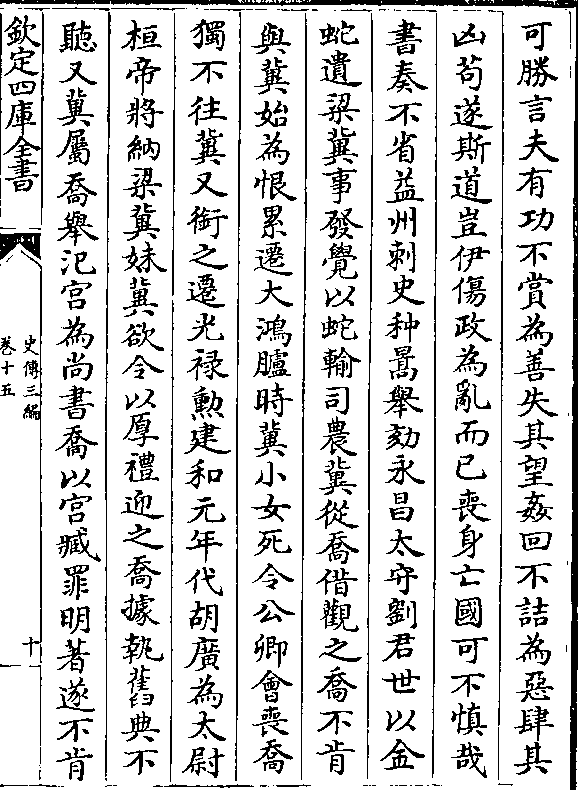 可勝言夫有功不賞為善失其望姦回不詰為惡肆其
凶苟遂斯道豈伊傷政為亂而已喪身亡國可不慎哉
書奏不省益州刺史种暠舉劾永昌太守劉君世以金
蛇遺梁冀事發覺以蛇輸司農冀從喬借觀之喬不肯
與冀始為恨累遷大鴻臚時冀小女死令公卿會喪喬
獨不往冀又銜之遷光祿勲建和元年代胡廣為太尉
桓帝將納梁冀妹冀欲令以厚禮迎之喬據執舊典不
聽又冀屬喬舉氾宫為尚書喬以宫贓罪明著遂不肯
欽定四庫全書
史傳三編
卷十五
十一